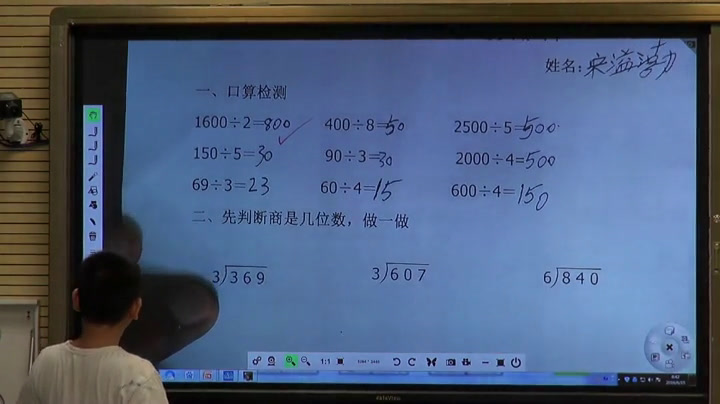 姓名:宋溢
一、口算检测
1600÷2=800 400÷8=50 2500÷5=500
150÷5=30 90÷3=30 2000÷4=500
69÷3=23 60÷4=15 600÷4=150
二、先判断商是几位数，做一做
3)369 3)607 6)840
1:1